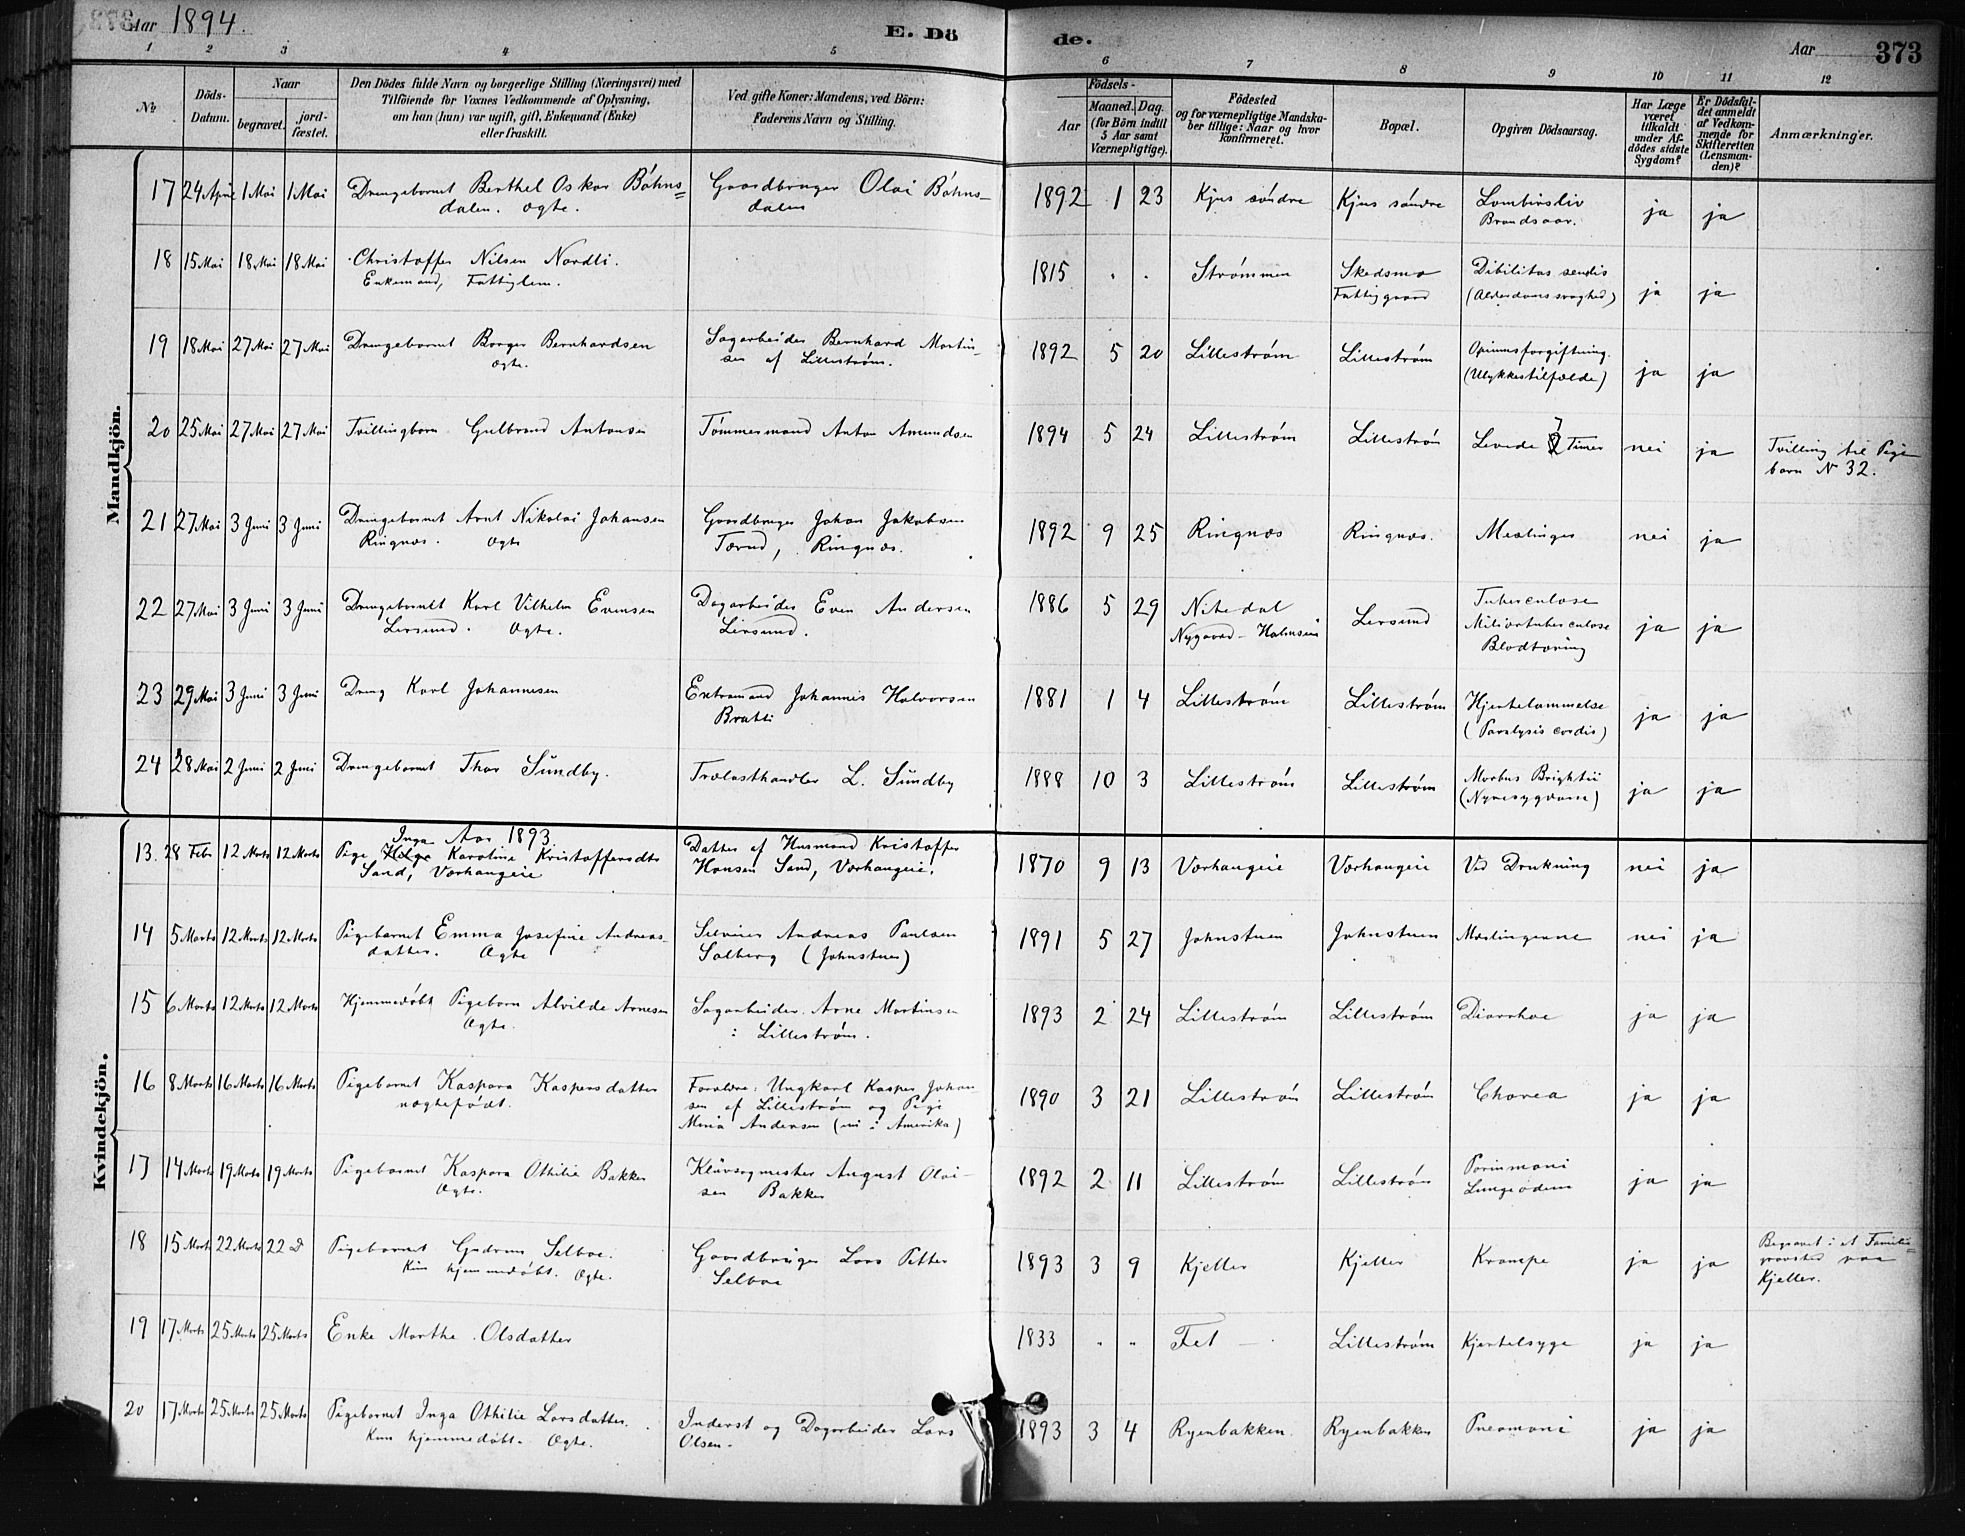 Aar 1894.
E. Dö
de.
Aar
373
1 2 3 4 5 6 7 8 9 10 11 12
№
Döds-Datum.
Naar
begravet.
jordfæstet.
Den Dödes fulde Navn og borgerlige Stilling (Næringsvei) med
Tilföiende for Voxnes Vedkommende af Oplysning,
om han (hun) var ugift, gift, Enkemand (Enke)
eller fraskilt.
Ved gifte Koner: Mandens, ved Börn:
Faderens Navn og Stilling.
Födsels-
Aar
Maaned. Dag.
(for Börn indtil
5 Aar samt
Værnepligtige).
Födested
og for værnepligtige Mandska-
ber tillige: Naar og hvor
konfirmeret.
Bopæl.
Opgiven Dödsaarsag.
Har Læge
været
tilkaldt
under Af-
dödes sidste
Sygdom?
Er Dödsfal-
det anmeldt
af Vedkom-
mende for
Skifteretten
(Lensman-
den)?
Anmærkninger.
Mandkjön.
17 24 April 1 Mai 1 Mai Drengebarnet Berthel Oskar Bøhns= Gaardbruger Olai Bøhns- 1892 1 23 Kjus søndre Kjus søndre ja ja
dalen. Ægte. dalen Brandsaar.
18 15 Mai 18 Mai 18 Mai Christoffer Nilsen Nordli. 1815 " " Strømmen Skedsmo Dibilitas senilis ja ja
Enkemand, Fattiglem. Fattiggaard (Alderdomssvaghed)
19 18 Mai 27 Mai 27 Mai Drengebarnet Borger Bernhardsen Sagarbeider Bernhard Martin- 1892 5 20 Lillestrøm Lillestrøm Opiumsforgiftning. ja ja
Ægte. sen af Lillestrøm. (Ulykkestilfælde)
20 25 Mai 27 Mai 27 Mai Tvillingbarn Gulbrand Antonsen Tømmermand Anton Amundsen 1894 5 24 Lillestrøm Lillestrøm Levede 7 Timer nei ja Tvilling til Pige
barn N 32.
21 27 Mai 3 Juni 3 Juni Drengebarnet Arnt Nikolai Johansen Gaardbruger Johan Jakobsen 1892 9 25 Ringnæs Ringnæs. Meslinger nei ja
Ringnæs. Ægte Tærud, Ringnæs.
22 27 Mai 3 Juni 3 Juni Drengebarnet Karl Vilhelm Evensen Dagarbeider Even Andersen 1886 5 29 Nitedal Leirsund Tuberculose ja ja
Leirsund. Ægte. Leirsund. Nygaard - Holmsen Miliærtuberculose
Blodtæring
23 29 Mai 3 Juni 3 Juni Dreng Karl Johannesen Extramand Johannes Halvorsen 1881 1 4 Lillestrøm Lillestrøm Hjertelammelse ja ja
Bratli (Paralysis cordis)
24 28 Mai 2 Juni 2 Juni Drengebarnet Thor Sundby. Trælasthandler L. Sundby 1888 10 3 Lillestrøm Lillestrøm Morbus Brightii ja ja
(Nyresygdom)
Kvindekjön.
Inga Aar 1893.
13. 28 Febr 12 Marts 12 Marts Pige Helga Karoline Kristoffersdtr Datter af Husmand Kristoffer 1870 9 13 Vorhaugeie Vorhaugeie Ved Drukning nei ja
Sand, Vorhaugeie Hansen Sand, Vorhaugeie.
14 5 Marts 12 Marts 12 Marts Pigebarnet Emma Josefine Andreas- Selveier Andreas Paulsen 1891 5 27 Johnstuen Johnstuen Meslingerne nei ja
datter. Ægte Solberg (Johnstuen)
15 6 Marts 12 Marts 12 Marts Hjemmedøbt Pigebarn Alvilde Arnesen Sagarbeider. Arne Martinsen 1893 2 24 Lillestrøm Lillestrøm Diarrhoe ja ja
Ægte. i Lillestrøm.
16 8 Marts 16 Marts 16 Marts Pigebarnet Kaspara Kaspersdatter Forældre: Ungkarl Kasper Johan- 1890 3 21 Lillestrøm Lillestrøm Chorea ja ja
uægtefødt. sen af Lillestrøm og Pige
Mina Andersen (nu i Amerika)
17 14 Marts 19 Marts 19 Marts Pigebarnet Kaspara Othilie Bakken August Olai- 1892 2 11 Lillestrøm Lillestrøm ja ja
Ægte. sen Bakken Lungeødem
18 15 Marts 22 Marts 22 D Pigebarnet Gudrun Selboe. Gaardbruger Lars Petter 1893 3 9 Kjeller Kjeller Krampe ja ja Begravet i et Familie=
Kun hjemmedøbt. Ægte. Selboe gravsted paa
Kjeller.
19 17 Marts 25 Marts 25 Marts Enke Marthe Olsdatter 1833 " " Fet Lillestrøm Kjertelsyge ja ja
20 17 Marts 25 Marts 25 Marts Pigebarnet Inga Othilie Larsdatter. Inderst og Dagarbeider Lars 1893 3 4 Ryenbakken. Ryenbakken Pneomoni ja ja
Kun hjemmedøbt. Ægte. Olsen.